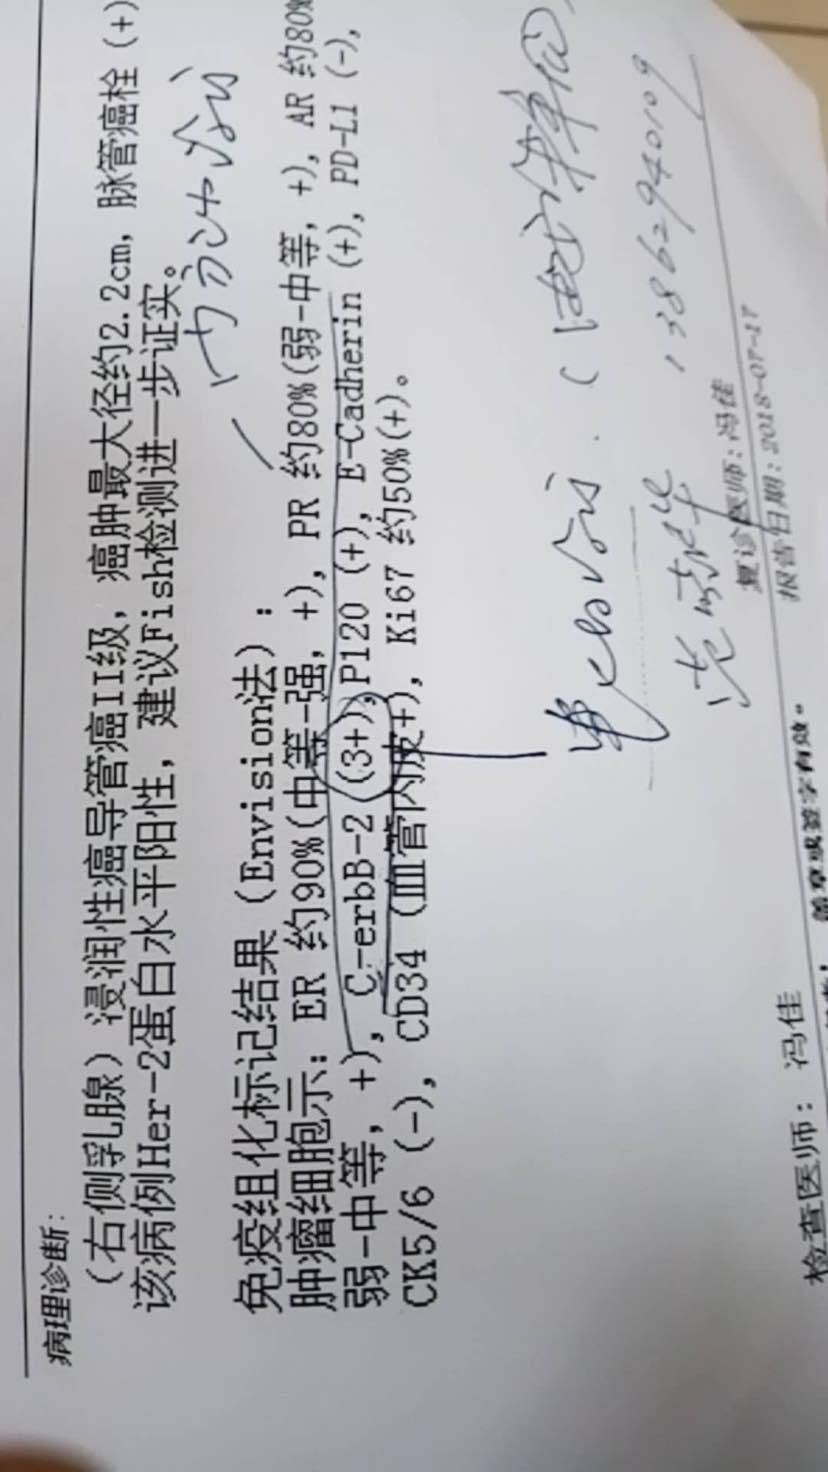 病理诊断:
（右侧乳腺）浸润性癌导管癌II级，癌肿最大径约2.2cm，脉管癌栓（+）
该病例Her-2蛋白水平阳性，建议Fish检测进一步证实。
内分泌治疗
免疫组化标记结果（Envision法）:
肿瘤细胞示: ER 约90%(中等-强, +), PR 约80%(弱-中等, +), AR 约80%
弱-中等, +), C-erbB-2 (3+), P120 (+), E-Cadherin (+), PD-L1 (-),
CK5/6 (-), CD34 (血管内皮+), Ki67 约50%(+)。
靶向治疗
13862940109
复诊医师: 冯佳
报告日期: 2018-07-17
检查医师: 冯佳
盖章或签字有效。